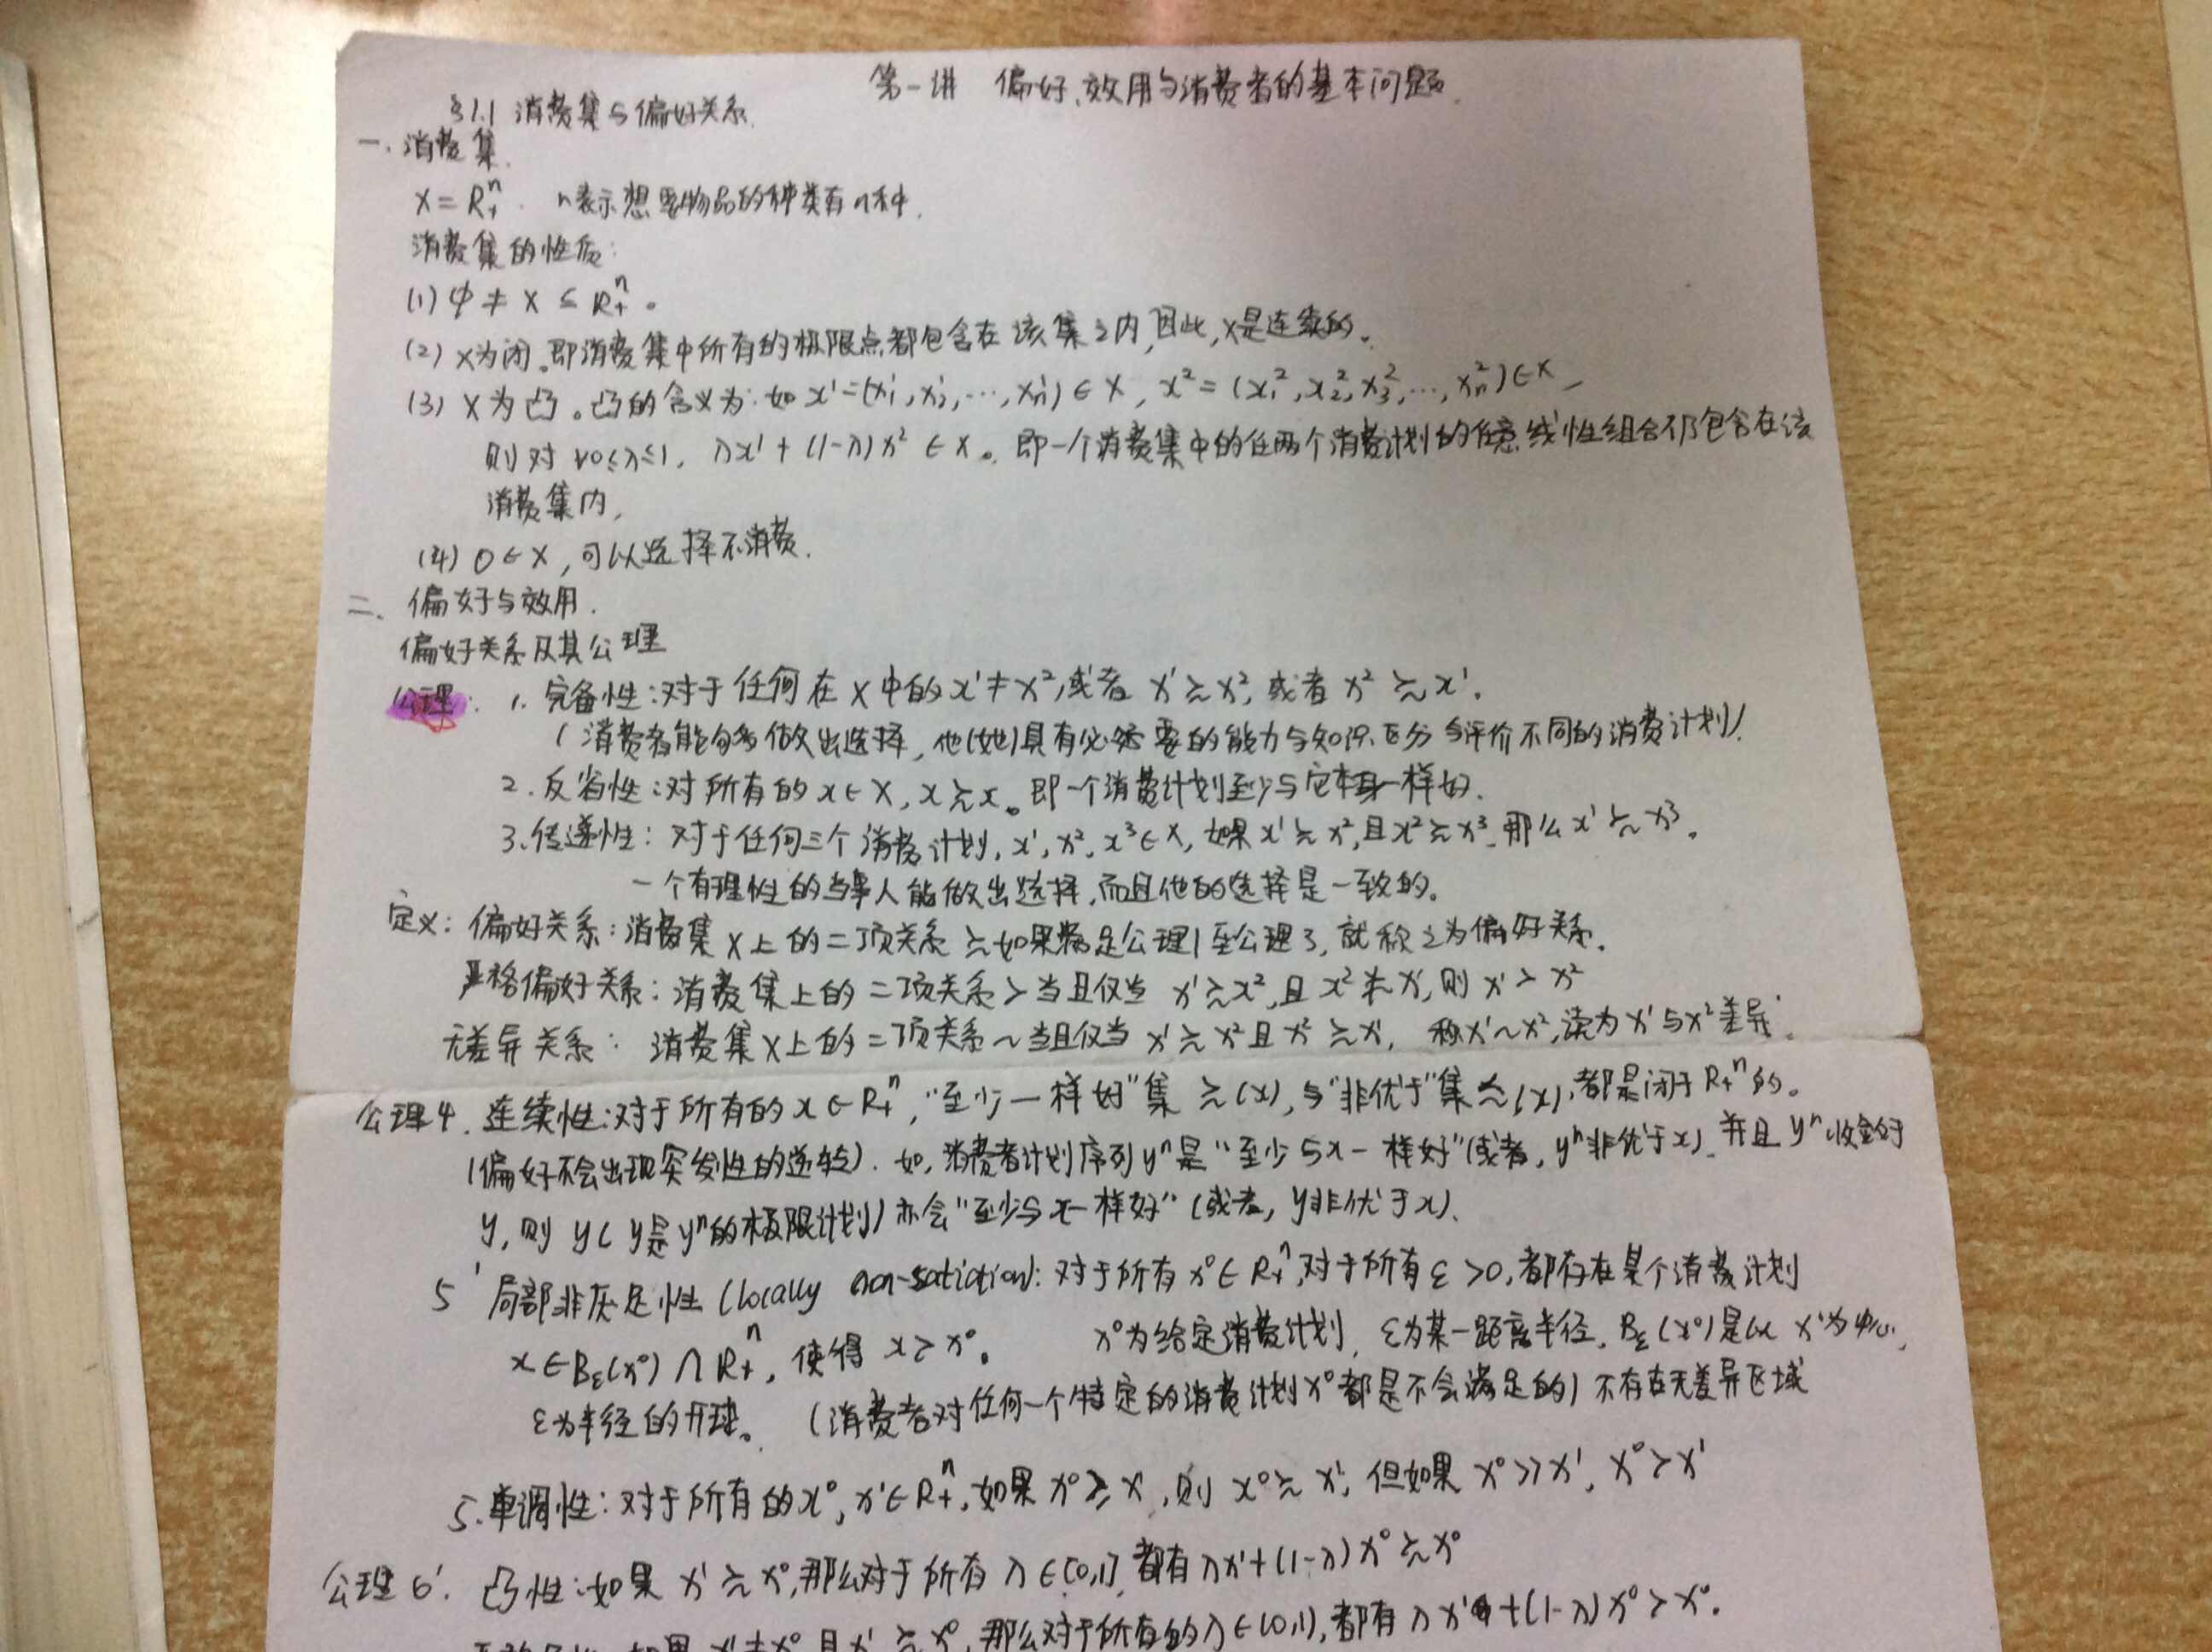 第一讲 偏好、效用与消费者的基本问题.
§1.1 消费集与偏好关系.
一. 消费集.
X = R₊ⁿ. n表示想要物品的种类有n种.
消费集的性质:
(1) φ ≠ X ⊆ R₊ⁿ。
(2) X为闭。即消费集中所有的极限点都包含在该集之内,因此,X是连续的。
(3) X为凸。凸的含义为:如 x¹=(x₁¹,x₂¹,…,xₙ¹)∈X, x²=(x₁²,x₂²,x₃²,…,xₙ²)∈X,
则对∀0≤λ≤1, λx¹+(1-λ)x²∈X。即一个消费集中的任两个消费计划的任意线性组合仍包含在该
消费集内,
(4) 0∈X,可以选择不消费.
二. 偏好与效用.
偏好关系及其公理
公理: 1. 完备性:对于任何在X中的x¹≠x²,或者x¹≿x²,或者x²≿x¹.
(消费者能够做出选择,他(她)具有必要的能力与知识区分与评价不同的消费计划)
2. 反省性:对所有的x∈X,x≿x。即一个消费计划至少与它本身一样好.
3. 传递性:对于任何三个消费计划,x¹,x²,x³∈X,如果x¹≿x²,且x²≿x³,那么x¹≿x³。
一个有理性的当事人能做出选择,而且他的选择是一致的。
定义:偏好关系:消费集X上的二项关系≿如果满足公理1至公理3,就称之为偏好关系.
严格偏好关系:消费集上的二项关系≻当且仅当 x¹≿x²,且x²⋡x¹,则x¹≻x²
无差异关系:消费集X上的二项关系~当且仅当x¹≿x²且x²≿x¹, 称x¹~x²,读为x¹与x²差异.
公理4. 连续性:对于所有的x∈R₊ⁿ,“至少一样好”集≿(x),与“非优于”集≾(x),都是闭于R₊ⁿ的。
(偏好不会出现突发性的逆转). 如,消费者计划序列yⁿ是“至少与x一样好”(或者,yⁿ非优于x),并且yⁿ收敛于
y,则y(y是yⁿ的极限计划)亦会“至少与x一样好”(或者,y非优于x).
5' 局部非厌足性(locally non-satiation):对于所有x⁰∈R₊ⁿ,对于所有ε>0,都存在某个消费计划
x∈Bε(x⁰)∩R₊ⁿ,使得x≻x⁰。 x⁰为给定消费计划,ε为某一距离半径,Bε(x⁰)是以x¹为中心,
ε为半径的开球。(消费者对任何一个特定的消费计划x⁰都是不会满足的)不存在无差异区域
5. 单调性:对于所有的x⁰,x¹∈R₊ⁿ,如果x⁰≥x¹,则x⁰≿x¹,但如果x⁰≫x¹,x⁰≻x¹
公理6'. 凸性:如果x¹≿x⁰,那么对于所有λ∈[0,1],都有λx¹+(1-λ)x⁰≿x⁰
如果x¹≠x⁰且x¹≿x⁰,那么对于所有的λ∈(0,1),都有λx¹+(1-λ)x⁰≻x⁰.